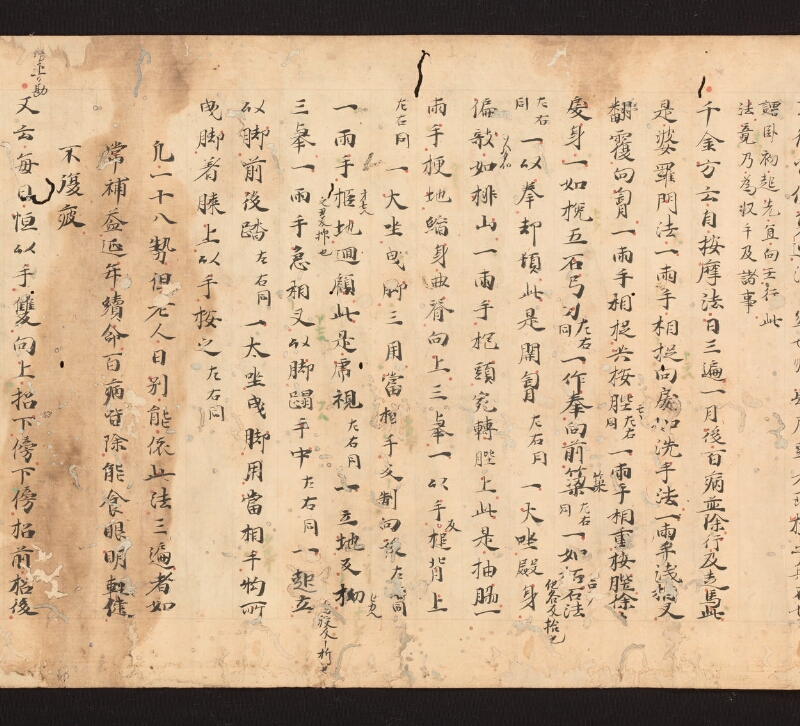 謂臥初起先宜向壬行此
法竟乃為収手及諸事
千金方云自按摩法日三遍一月後百病並除行及走馬此
是婆羅門法一兩手相捉向戾如洗手法一兩手淺相叉
翻覆向胷一兩手相捉共按䏶左右同一兩手相重按䏶徐〻
戾身一如挽五石弓力左右同一作拳向前築左右同一如拓石法
左右同一以拳却頓此是開胷左右同一大坐殿身
偏敧如排山一兩手抱頭宛轉䏶上此是抽脇一
兩手梗地縮身曲脊向上三舉一以手反槌背上
左右同一大坐曳脚三用當相手
左右同
一兩手拒地迴顧此是虎視左右同一立地反拗
三舉一兩手急相叉以脚蹋手中左右同一起立
以脚前後踏左右同一大坐曳脚用當相手拘所
曳脚著膝上以手按之左右同
凡二十八勢但老人日別能依此法三遍者如
常補益延年續命百病皆除能食眼明輕健
不復疲
又云每日恒以手雙向上招下傍下傍招前招後